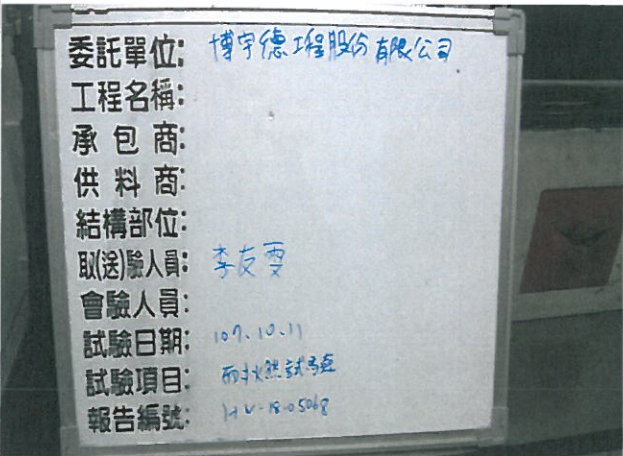 委託單位: 博宇德工程股份有限公司
工程名稱:
承包商:
供料商:
結構部位:
取(送)驗人員: 李友雯
會驗人員:
試驗日期: 107.10.11
試驗項目: 耐燃試驗
報告編號: HV-18-05068